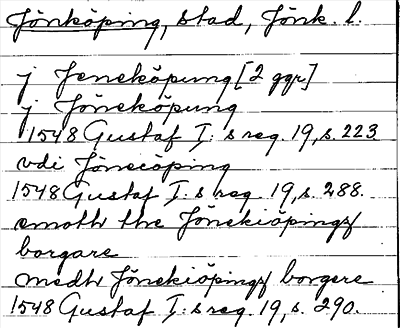 Jönköping, stad, Jönk. l.
j Jeneköpung [2 ggr]
j Jöneköpung
1548 Gustaf I:s reg. 19, s. 223
vdi Jöneiöping
1548 Gustaf I:s reg. 19, s. 288.
emoth the Jönekiöpingz
borgare
medh Jönekiöpingz borgere
1548 Gustaf I:s reg. 19, s. 290.